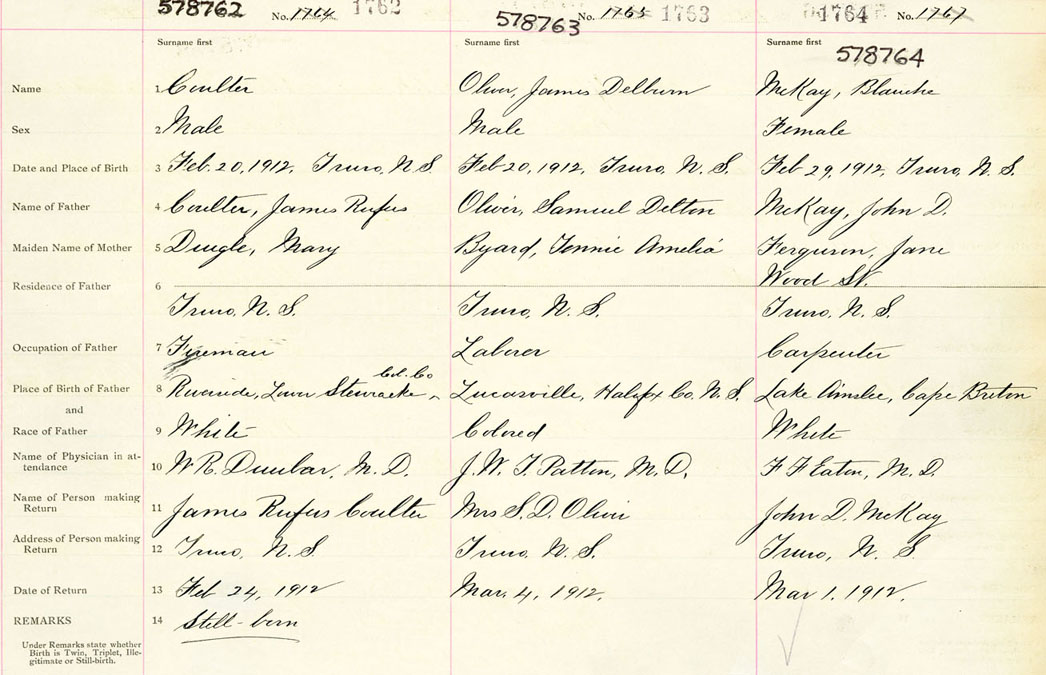 578762 No. 1764 1762 578763 No. 1765 1763 1764 No. 1767
Surname first Surname first Surname first
578764
Name 1 Coulter Oliver, James Delburn McKay, Blanche
Sex 2 Male Male Female
Date and Place of Birth 3 Feb. 20, 1912, Truro, N. S. Feb 20, 1912, Truro, N. S. Feb 29, 1912, Truro, N. S.
Name of Father 4 Coulter, James Rufus Oliver, Samuel Delton McKay, John D.
Maiden Name of Mother 5 Dingle, Mary Byard, Tennie Amelia Ferguson, Jane
Wood St.
Residence of Father 6
Truro, N. S. Truro, N. S. Truro, N. S.
Occupation of Father 7 Fireman Laborer Carpenter
Col. Co
Place of Birth of Father 8 Riverside, Lower Stewiacke Lucasville, Halifax Co. N. S. Lake Ainslee, Cape Breton
and
Race of Father 9 White Colored White
Name of Physician in at-
tendance 10 W. R. Dunbar, M. D. J. W. T. Patton, M. D. F F Eaton, M. D.
Name of Person making
Return 11 James Rufus Coulter Mrs S. D. Oliver John D. McKay
Address of Person making
Return 12 Truro, N. S Truro, N. S. Truro, N. S
Date of Return 13 Feb 24, 1912 Mar. 4, 1912. Mar 1. 1912.
REMARKS 14 Still-born
Under Remarks state whether
Birth is Twin, Triplet, Ille-
gitimate or Still-birth.